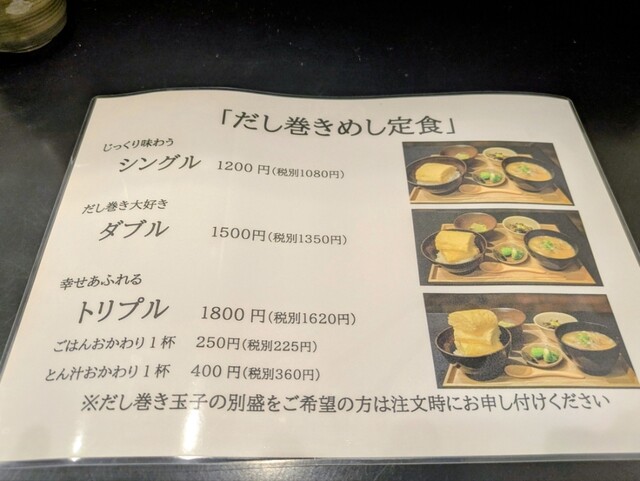 「だし巻きめし定食」
じっくり味わう
シングル 1200円(税別1080円)
だし巻き大好き
ダブル 1500円(税別1350円)
幸せあふれる
トリプル 1800円(税別1620円)
ごはんおかわり1杯 250円(税別225円)
とん汁おかわり1杯 400円(税別360円)
※だし巻き玉子の別盛をご希望の方は注文時にお申し付けください